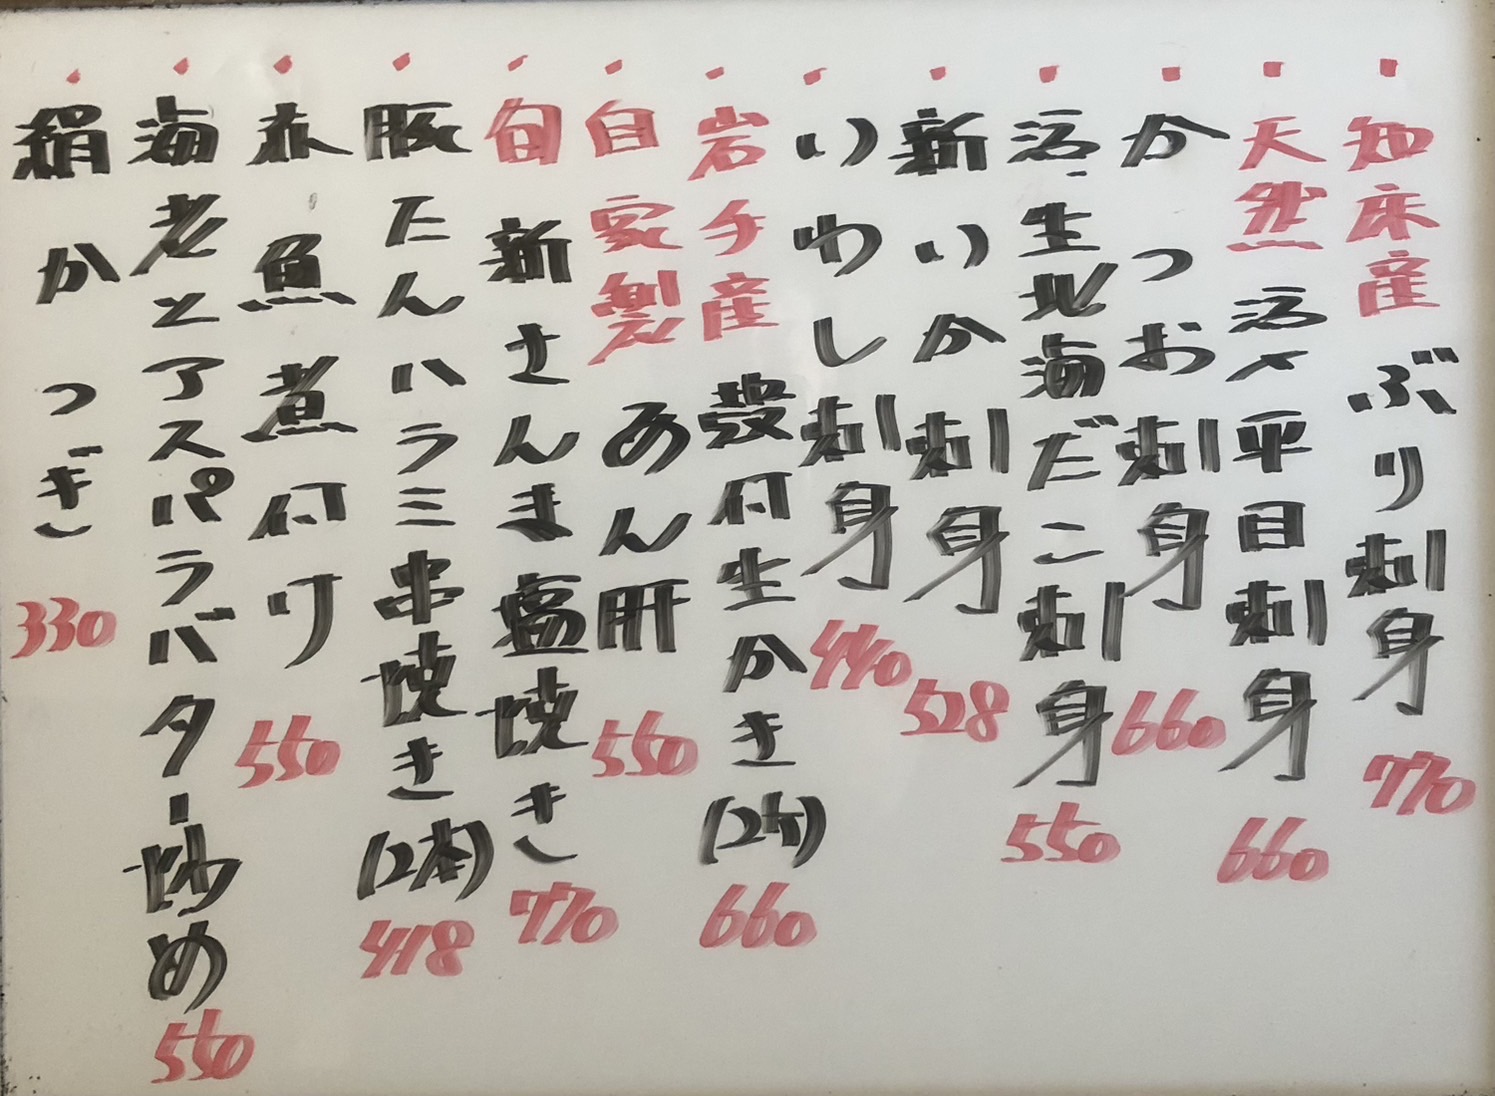 ・知床産 ぶり刺身 770
・天然 活〆平目刺身 660
・かつお刺身 660
・活・生北海だこ刺身 550
・新いか刺身 528
・いわし刺身 440
・岩手産 殻付生かき(2ヶ) 660
・自家製 あん肝 550
・旬 新さんま塩焼き 770
・豚たんハラミ串焼き(2本) 418
・赤魚煮付け 550
・海老とアスパラバター炒め 550
・絹かつぎ 330